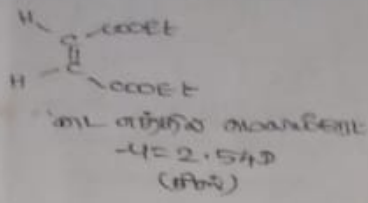 H
C COOEt
||
H C
COOEt
டை எத்தில் மலையேட்
μ = 2.54D
(சிஸ்)